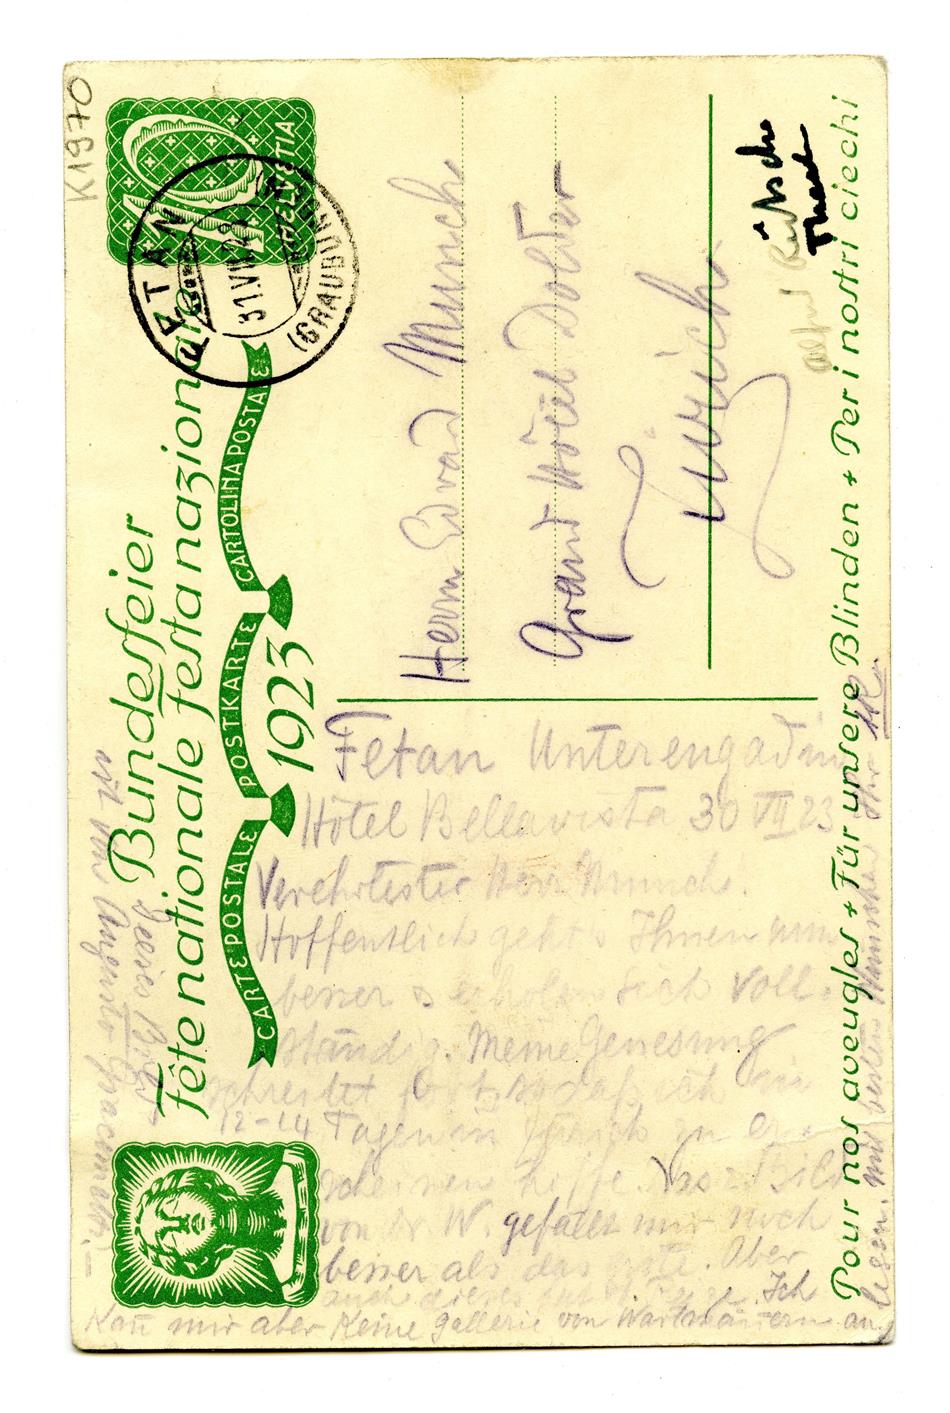 K1970
HELVETIA
FETAN
31.VII.23
(GRAUBÜNDEN)
Bundesfeier
Fête nationale festa nazionale
CARTE POSTALE POSTKARTE CARTOLINA POSTALE
1923
Herrn Edvard Munch
Grand Hôtel Dolder
Zürich
Fetan Unterengadin
Hôtel Bellavista 30 VII 23
Verehrtester Herr Munch!
Hoffentlich geht's Ihnen nun
besser & erholen sich voll-
ständig. Meine Genesung
schreitet fort, sodass ich in
12-14 Tagen in Zürich zu er-
scheinen hoffe. Bild
von Dr. W. gefällt mir noch
besser als das erste. Aber
auch dieses hat s. Ich
kann mir aber keine Gallerie von Wartmännern an-
legen. Mit besten Wünschen Ihr AR
Dieses Bild
ist von Augusto Giacometti.—
Pour nos aveugles + Für unsere Blinden + Per i nostri ciechi